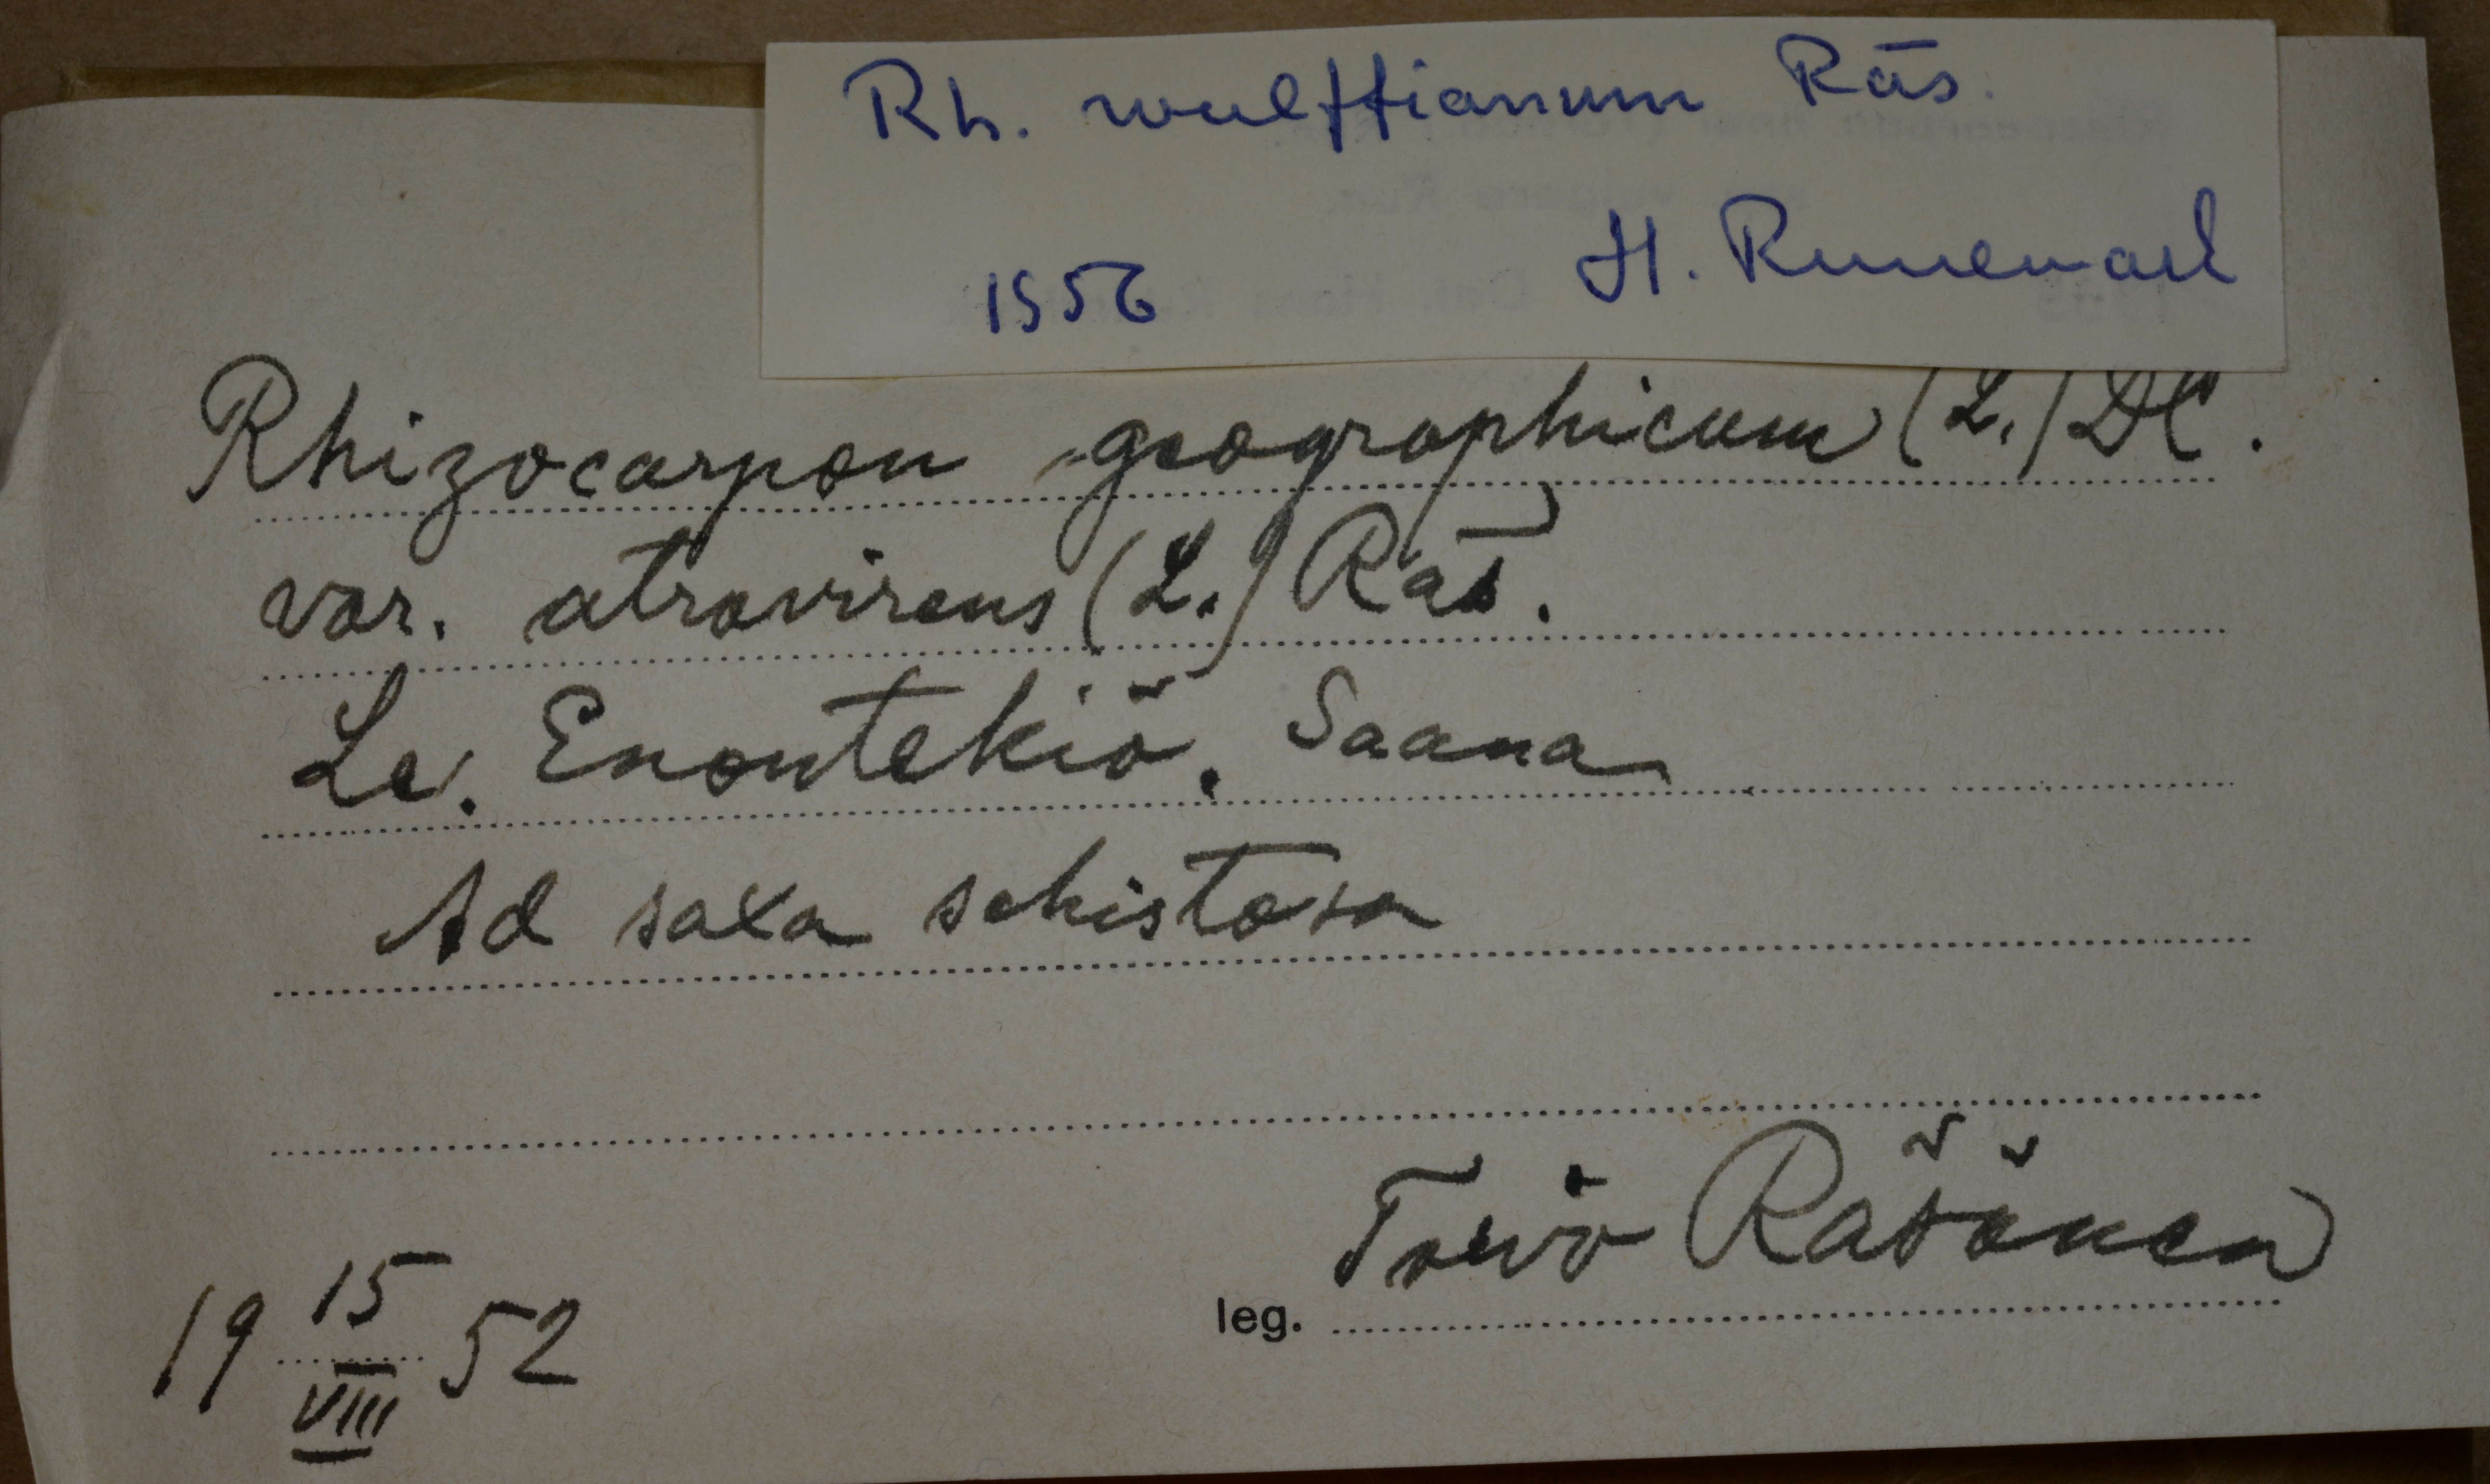 Rh. wulffianum Räs.
1956 H. Runemark
Rhizocarpon geographicum (L.) DC.
var. atrovirens (L.) Räs.
Le. Enontekiö. Saana
Ad saxa schistosa
leg. Toivo Räsänen
19 15/VIII 52